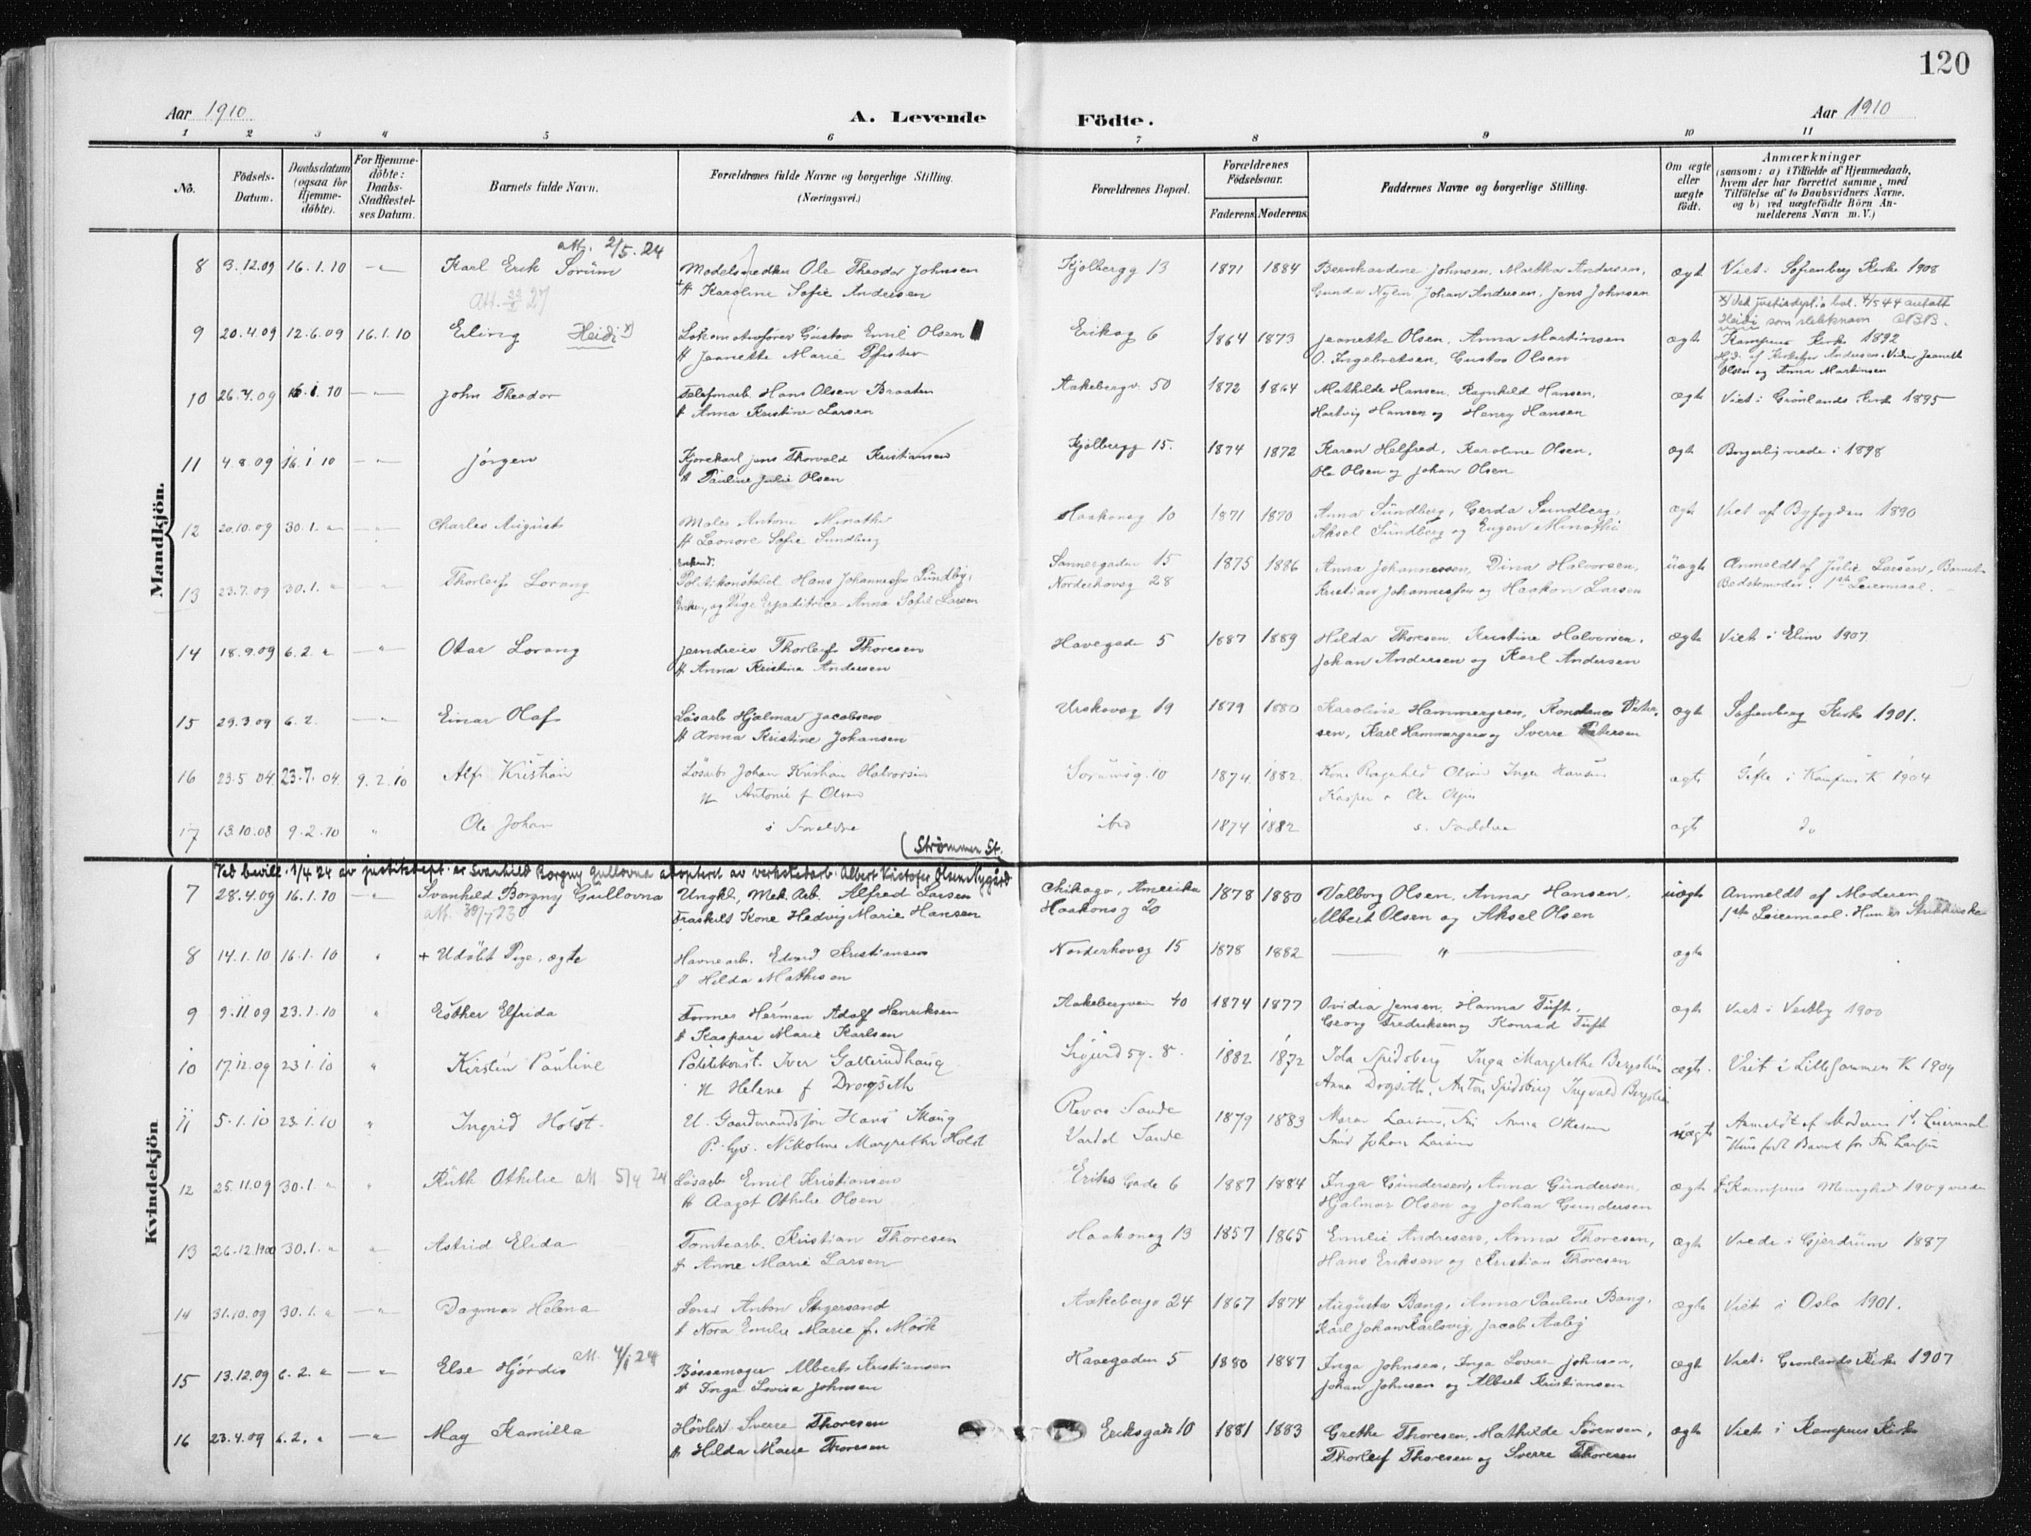 120
Aar 1910
A. Levende Födte.
Aar 1910
1 2 3 4 5 6 7 8 9 10 11
No. Födsels-Datum. Daabsdatum (ogsaa for Hjemme-döbte). For Hjemme-döbte: Daabs-Stadfæstel-ses Datum. Barnets fulde Navn. Forældrenes fulde Navne og borgerlige Stilling. (Næringsvei.) Forældrenes Bopæl. Forældrenes Födselsaar. Faderens. Moderens. Faddernes Navne og borgerlige Stilling. Om ægte eller uægte födt. Anmærkninger (saasom: a) i Tilfælde af Hjemmedaab, hvem der har forrettet samme, med Tilföielse af to Daabsvidners Navne. og b) ved uægtefödte Börn An-melderens Navn m. V.)
Mandkjön.
att. 2/5.24
8 3.12.09 16.1.10 Karl Erik Sørum Modelsnedker Ole Theodor Johnsen Kjølbergg 13 1871 1884 Bernhardine Johnsen, Martha Andersen, ægt Viet i Sofienberg Kirke 1908
H Karoline Sofie Andersen Gunda Nylin, Johan Andersen, Jens Johnsen
9 20.4.09 12.6.09 16.1.10 Eling Heidi x) Lokomotivfører Gustav Emil Olsen Eriksg 6 1864 1873 Jeanette Olsen, Anna Martinsen ægt Kampens Kirke 1892
H Jeanette Marie Pfister O. Ingebretsen, Gustav Olsen
x) Ved justisdept.s bev. 4/5 44 antatt Heidi som slektsnavn
Hjd. af Andersen. Vidner Jeanette Olsen og Anna Martinsen
10 26.7.09 16.1.10 John Theodor Telefonarb. Hans Olsen Braaten Aakebergv. 50 1872 1864 Mathilde Hansen, Ragnhild Hansen, ægt Viet i Grønlands Kirke 1895
H Anna Kristine Larsen Hartvig Hansen og Henry Hansen
11 4.8.09 16.1.10 Jörgen Kjørekarl Jens Thorvald Kristiansen Kjølbergg 15. 1874 1872 Karen Helfred, Karoline Olsen, ægt Borgerlig viede i 1898
H Pauline Julie Olsen Ole Olsen og Johan Olsen
12 20.10.09 30.1. Charles August Maler Anton Minothi Haakonsg 10 1871 1870 Anna Sundberg, Gerda Sundberg, ægt Viet af Byfogden 1890
H Leonore Sofie Sundberg Aksel Sundberg og Eugen Minothi
13 23.7.09 30.1. Thorleif Lorang Politikonstabel Hans Johannessen Lundby, Sannergaden 15 1875 1886 Anna Johannessen, Dina Halvorsen, uægt Anmeldt af Julie Larsen, Barnets
og Pige Expeditrice Anna Sofie Larsen Norderhovsg 28 Kristian Johannessen og Haakon Larsen Bedstemoder. 1ste Leiermaal.
14 18.9.09 6.2. Otar Lorang Jerndreier Thorleif Thoresen Havegaden 5 1887 1889 Hilda Thoresen, Kristine Halvorsen, ægte Viet i Elim 1907
H Anna Kristine Andersen Johan Andersen og Karl Andersen
15 29.3.09 6.2. Einar Olaf Løsarb. Hjalmar Jacobsen Urskovsg 19 1879 1880 Karoline Hammergren, Peter- ægt Sofienberg Kirke 1901.
H Anna Kristine Johansen sen, Karl Hammergren og Sverre Petersen
16 23.5 04 23.7.04 9.2.10 Alf Kristian Løsarb Johan Kristian Halvorsen Sørumsg. 10 1874 1882 Kone Ragnhild Olsen Inga Hansen ægt Gifte i Kampens K 1904
H Antonie f Olsen Kasper & Ole Olsen
17 13.10.08 9.2.10 Ole Johan s Forældre ibid 1874 1882 s. Faddere ægt do
(Strömmen St.
Kvindekjön
Ved bevill. 1/4 24 av justitsdept. er Svanhild Borgny Gullovna adopteret av verkstedarb. Albert Kristofer Olsen Nygård
7 28.4.09 16.1.10 Svanhild Borgny Gullovna Ungkl, Mek. Arb. Alfred Larsen Chikago, Amerika 1878 1880 Valborg Olsen, Anna Hansen, uægt Anmeldt af Moderen
att. 30/7 23 Fraskilt Kone Hedvig Marie Hansen Haakonsg 20 Albert Olsen og Aksel Olsen 1ste Leiermaal. Hun er
8 14.1.10 16.1.10 + Udøbt Pige, ægte Havnearb. Edvard Kristiansen Norderhovsg 15 1878 1882 ægte
H Hilda Mathisen
9 9.11.09 23.1.10 Esther Elfrida Former Herman Adolf Henriksen Aakebergveien 40 1874 1877 Ovidia Jensen, Hanna Tüft, ægt Viet i Vestby 1900
H Kaspara Marie Karlsen Georg Fredriksen og Konrad Tüft
10 17.12.09 23.1.10 Kirstin Pauline Politikonst. Iver Galterudhaug Sigurdsg. 8. 1882 1872 Ida Spidsberg Inga Margrethe ægt. Viet i Lillehammer K 1909
H Helene f Drogseth Anna Drogseth, Anton Spidsberg Ingvald
11 5.1.10 23.1.10 Ingrid Holst. U. Gaardmandssøn Hans Skaug Revaa Sande 1879 1883 Maren Larsen, Anna Ottesen uægt Anmeldt af Moderen 1st Leiermaal
P. Nikoline Margrethe Holst Sande Johan Larsen
12 25.11.09 30.1. Ruth Othilie att. 5/4 24 Løsarb Emil Kristiansen Eriks Gade 6 1887 1884 Inga Gundersen, Anna Gundersen, ægt Kampens Menighed 1909 viede
H Aagot Othilie Olsen Hjalmar Olsen og Johan Gundersen
13 26.12.1900 30.1. Astrid Elida Tomtearb. Kristian Thoresen Haakonsg 13 1857 1865 Emilie Andresen, Anna Thoresen, ægte Viede i Gjerdrum 1887
H Anne Marie Larsen Hans Eriksen og Kristian Thoresen
14 31.10.09 30.1. Dagmar Helena Smed Anton Stigersand Aakebergv 24 1867 1874 Augusta Bang, Anna Pauline Bang, ægte Viet i Oslo 1901.
H Nora Emilie Marie f. Mørk Karl Johan Karlsvig, Jacob Aaby
15 13.12.09 6.2. Else Hjördis att. 4/1 24 Bøssemager Albert Kristiansen Havegaden 5 1880 1887 Inga Johnsen, Inga Lovise Johnsen, ægt Viet i Grønlands Kirke 1907
H Inga Lovisa Johnsen Johan Johnsen og Albert Kristiansen
16 23.4.09 6.2. May Kamilla Høvler Sverre Thoresen Eriksgade 10 1881 1883 Grethe Thoresen, Mathilde Sørensen, ægte Viet i Kampens Kirke
H Hilda Marie Thoresen Thorleif Thoresen og Sverre Thoresen